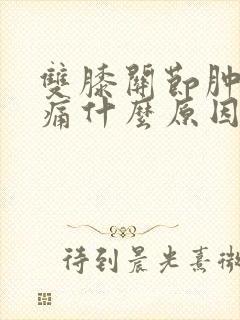 雙膝關節肿
痛什麼原因
待到晨光熹微